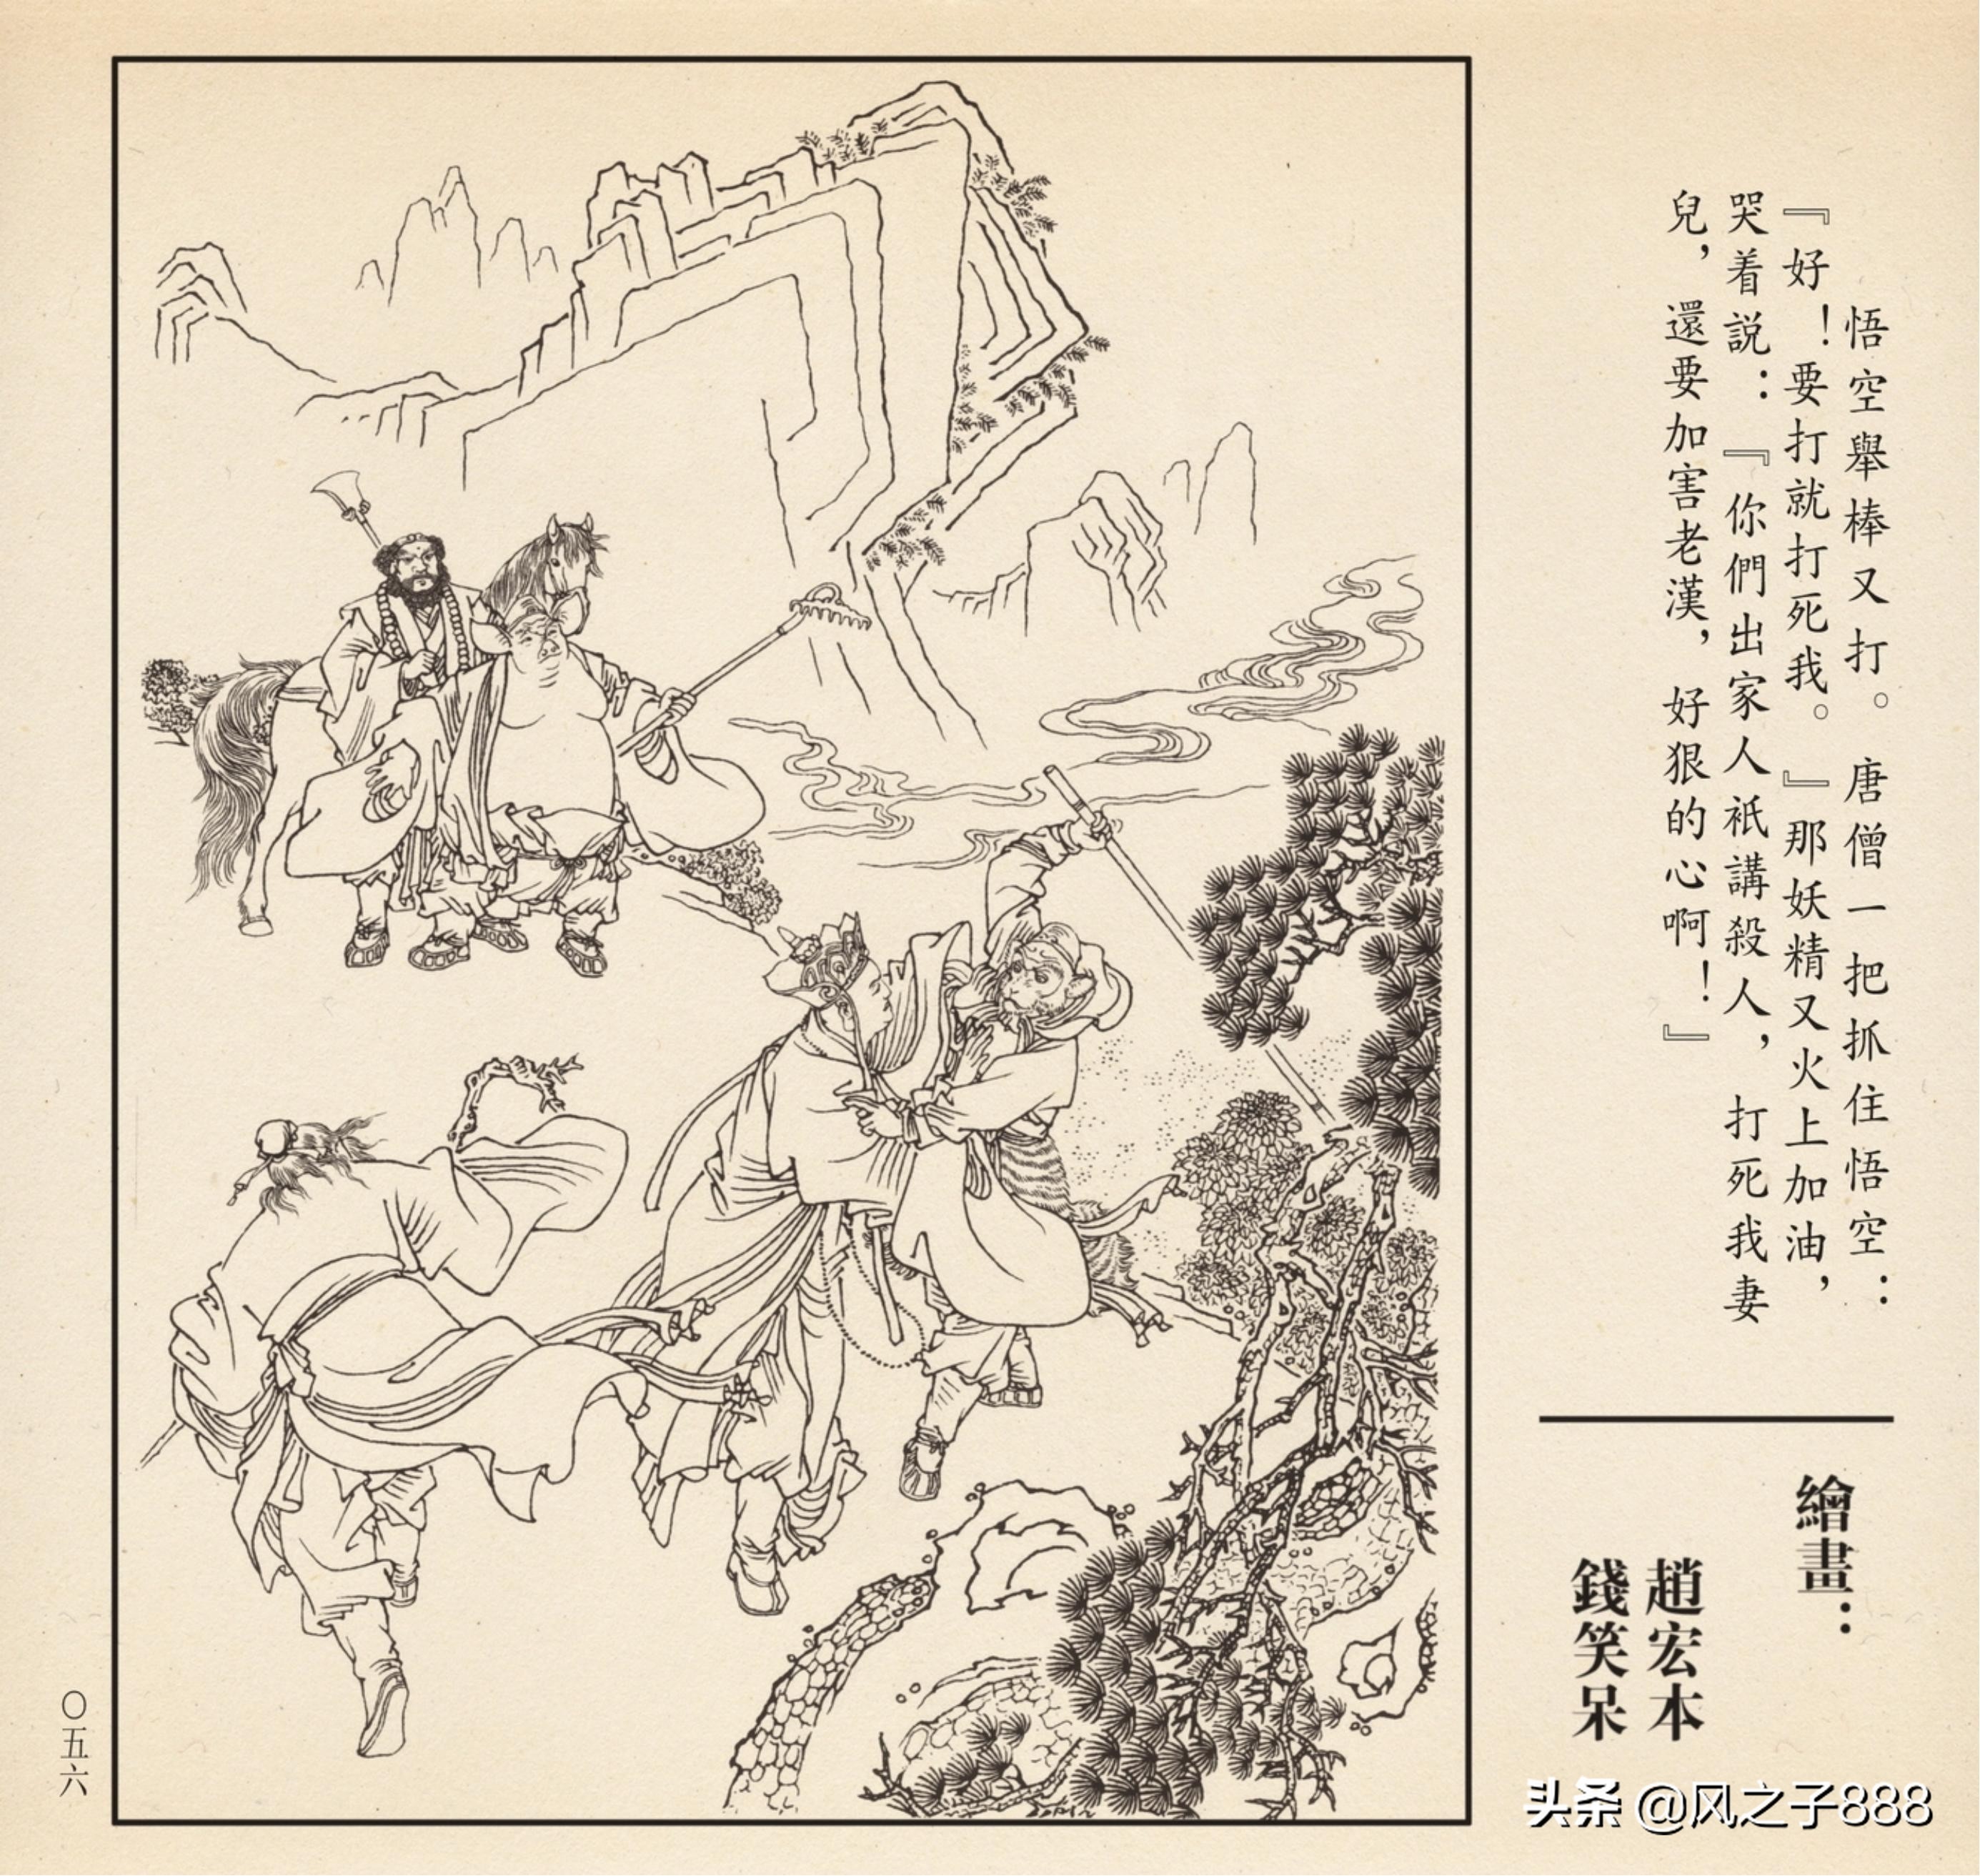 悟空舉棒又打。唐僧一把抓住悟空：
『好！要打就打死我。』那妖精又火上加油，
哭着説：『你們出家人衹講殺人，打死我妻
兒，還要加害老漢，好狠的心啊！』
繪畫：
趙宏本
錢笑呆
〇五六
头条 @风之子888